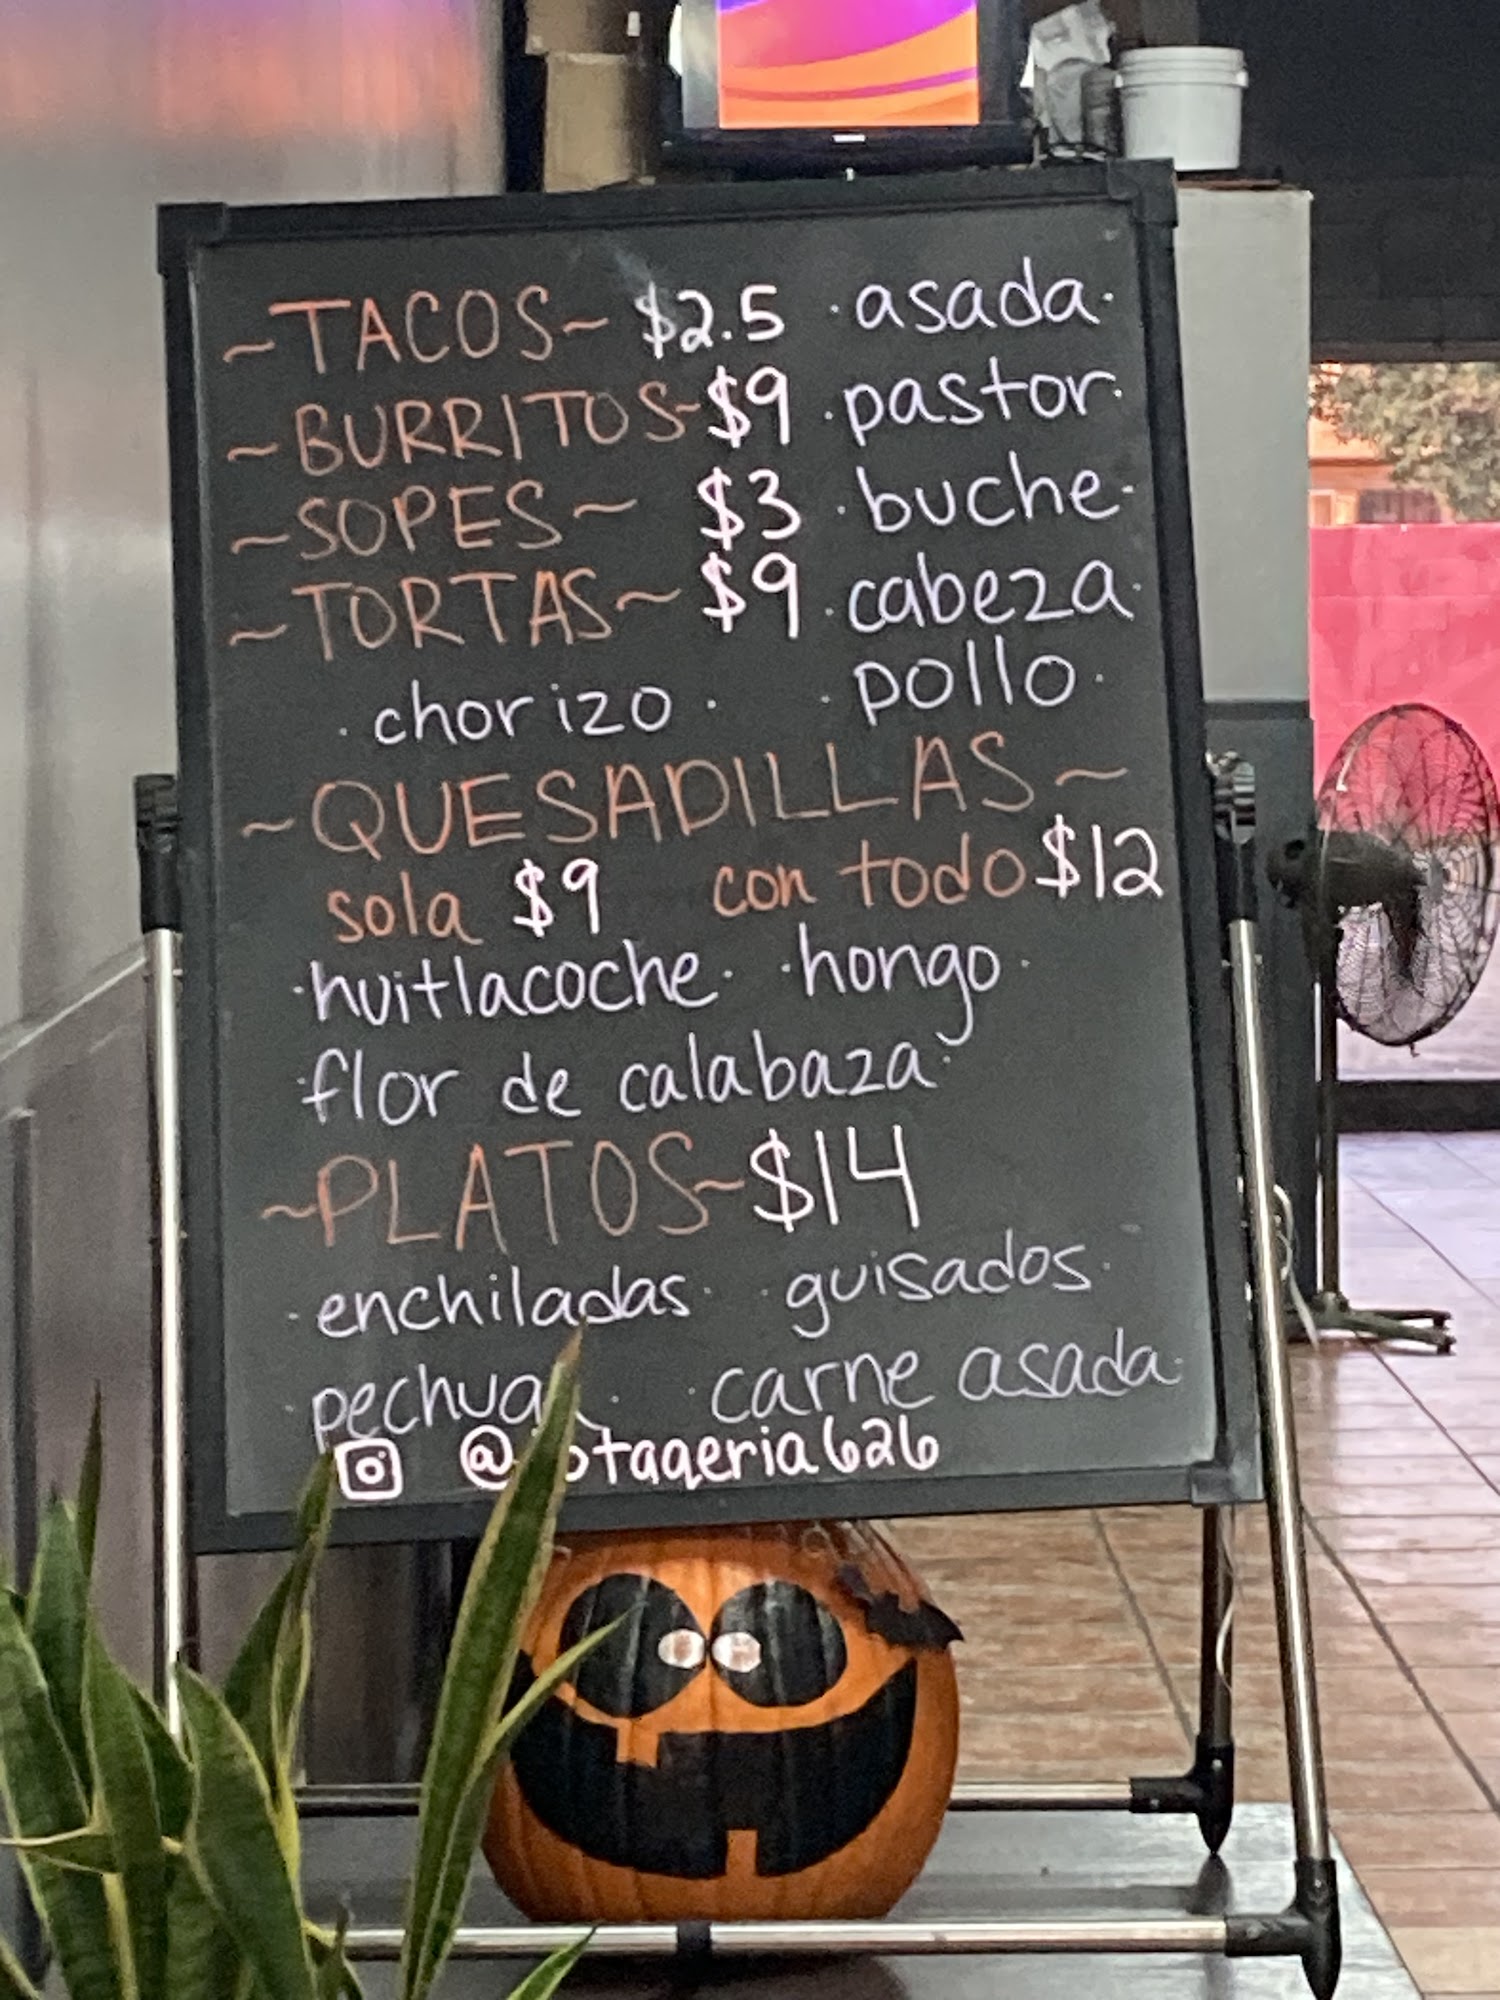 ~TACOS~ $2.5 · asada ·
~BURRITOS~ $9 · pastor ·
~SOPES~ $3 · buche ·
~TORTAS~ $9 · cabeza ·
· chorizo · · pollo ·
~QUESADILLAS~
sola $9 con todo $12
· huitlacoche · · hongo ·
· flor de calabaza ·
~PLATOS~ $14
· enchiladas · · guisados ·
· pechuga · · carne asada ·